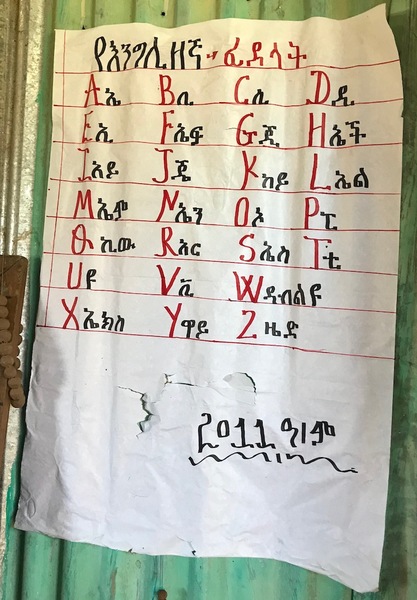 የእንግሊዘኛ ፊደላት
A ኤ B ቢ C ሲ D ዲ
E ኢ F ኤፍ G ጂ H ኤች
I አይ J ጄ K ከይ L ኤል
M ኤም N ኤን O ኦ P ፒ
Q ኪው R አር S ኤስ T ቲ
U ዩ V ቪ W ዳብልዩ
X ኤክስ Y ዋይ Z ዜድ
2011 ዓ/ም